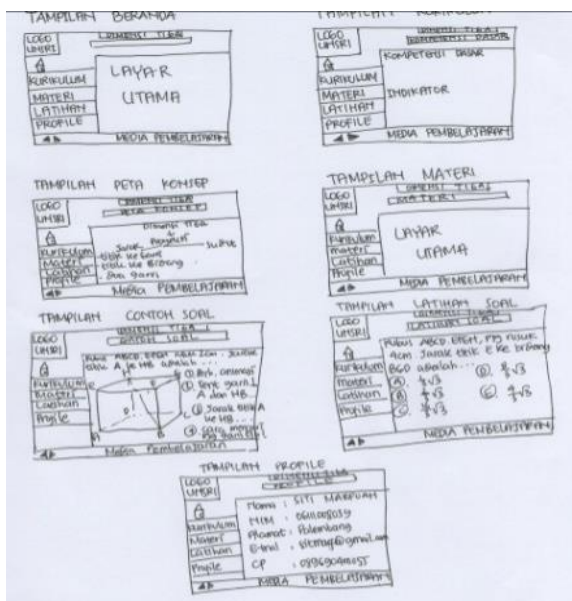 TAMPILAN BERANDA
LOGO
UNSRI
DIMENSI TIGA
KURIKULUM
MATERI
LATIHAN
PROFILE
LAYAR
UTAMA
MEDIA PEMBELAJARAN
TAMPILAN KURIKULUM
LOGO
UNSRI
DIMENSI TIGA
KOMPETENSI DASAR
KURIKULUM
MATERI
LATIHAN
PROFILE
KOMPETENSI DASAR
INDIKATOR
MEDIA PEMBELAJARAN
TAMPILAN PETA KONSEP
LOGO
UNSRI
DIMENSI TIGA
PETA KONSEP
Kurikulum
Materi
Latihan
Profile
Dimensi Tiga
Jarak
sudut
- titik ke bidang
MEDIA PEMBELAJARAN
TAMPILAN MATERI
LOGO
UNSRI
DIMENSI TIGA
MATERI
Kurikulum
Materi
Latihan
Profile
LAYAR
UTAMA
MEDIA PEMBELAJARAN
TAMPILAN CONTOH SOAL
LOGO
UNSRI
DIMENSI TIGA
CONTOH SOAL
Kurikulum
Materi
Latihan
Profile
Kubus ABCD.EFGH
titik A ke HB adalah ...
A dan HB
Jarak titik A
ke HB ...
Media Pembelajaran
TAMPILAN LATIHAN SOAL
LOGO
UNSRI
DIMENSI TIGA
LATIHAN SOAL
Kurikulum
Materi
Latihan
Profile
Kubus ABCD.EFGH, rusuk
4cm Jarak titik E ke bidang
BGD adalah ...
MEDIA PEMBELAJARAN
TAMPILAN PROFILE
LOGO
UNSRI
DIMENSI TIGA
PROFILE
Kurikulum
Materi
Latihan
Profile
Nama : SITI MARPUAH
NIM :
Alamat : Palembang
E-mail :
CP :
MEDIA PEMBELAJARAN